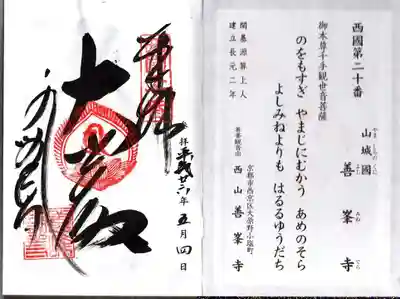 西國第二十番
山城國 善峯寺
やましろのくに よし みね でら
御本尊千手観世音菩薩
のをもすぎ やまじにむかう あめのそら
よしみねよりも はるるゆうだち
開基源算上人
建立長元二年
京都市西京区大原野小塩町
西山善峯寺
奉拝
大悲殿
拝
平成廿二年五月四日